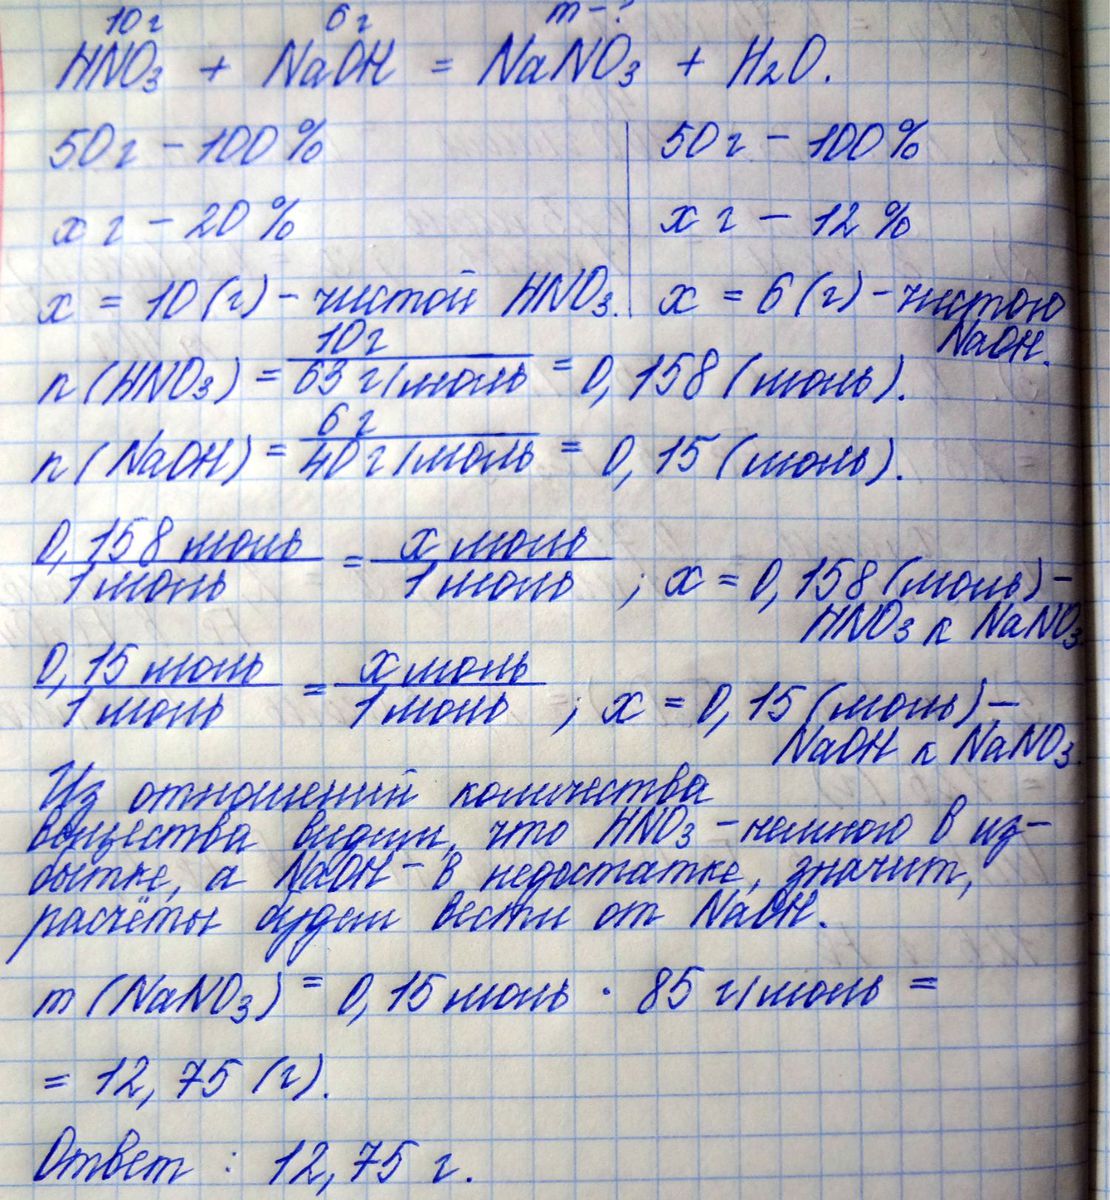 10г 6г m-?
HNO₃ + NaOH = NaNO₃ + H₂O.
50г - 100% 50г - 100%
xг - 20% xг - 12%
x = 10(г) - чистой HNO₃. x = 6(г) - чистою
NaOH.
n(HNO₃) = 10г / 63г/моль = 0,158(моль).
n(NaOH) = 6г / 40г/моль = 0,15(моль).
0,158 моль / 1 моль = x моль / 1 моль ; x = 0,158(моль) -
HNO₃ к NaNO₃
0,15 моль / 1 моль = x моль / 1 моль ; x = 0,15(моль) -
NaOH к NaNO₃.
Из отношений количества
вещества видим, что HNO₃ - немного в из-
бытке, а NaOH - в недостатке, значит,
расчёты будем вести от NaOH.
m(NaNO₃) = 0,15 моль · 85 г/моль =
= 12,75(г).
Ответ : 12,75 г.